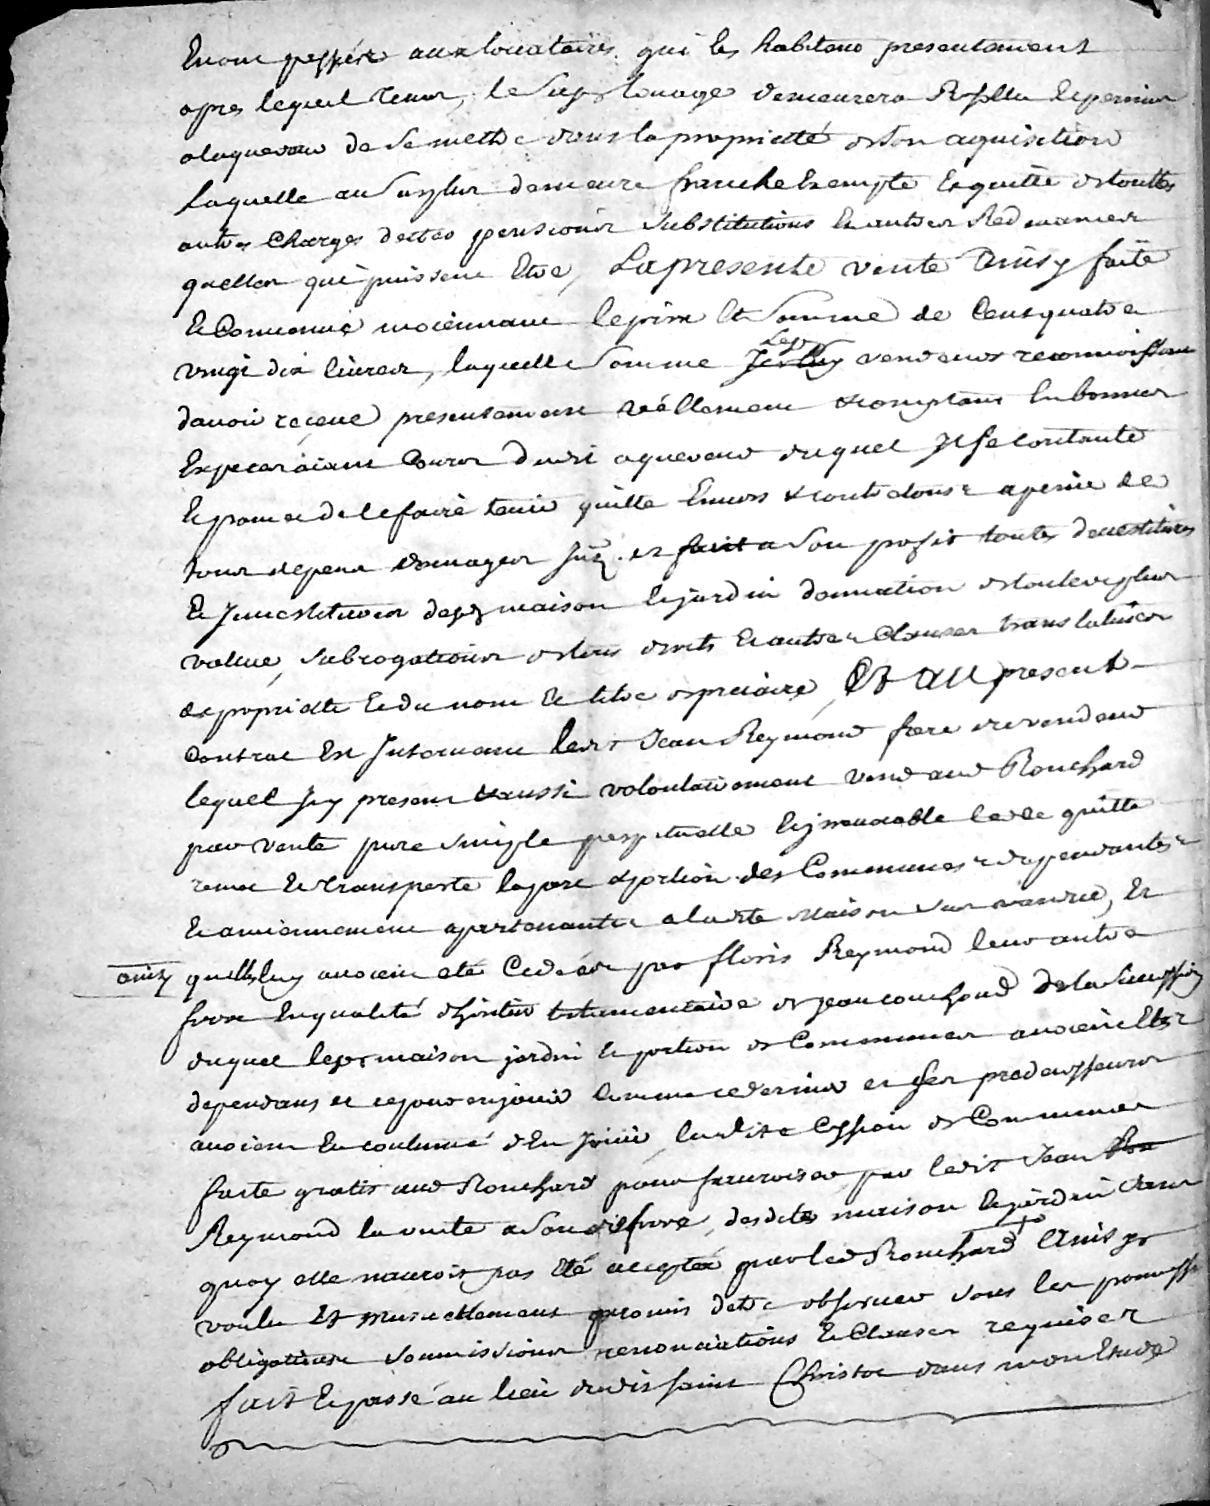 aux locataires qui les habitans presentement
apres lequel le louage demeurera
de se mettre dans la proprietté de son aquisition
Laquelle au surplus demeure franche Exempte Et quitte de touttes
autres Charges dettes pensions substitutions Et autres Redevances
quelles qui puissent Etre, La presente vente Ainsy faite
Et Convenüe moiennant le prix Et somme de Cent quatre
vingt dix livres, laquelle somme Les vendeurs reconnoissent
davoir reçeue presentement réellement & comptant En bonnes
Especes aiant Cours dudit aquereur duquel Il se contante
Et promet de le faire tenir quitte Envers & contre tous a peine de
tous depens domages et fait a son profit toutes devestitures
Et Investitures maison Et jardin donnation de toute plus
vallue, subrogations de tous droits Et autres Clauses translatives
de proprietté Et du nom Et titre de precaire, Et au present
Contrat Est Intervenu ledit Jean Reymond frere du vendeur
lequel Icy present & aussi volontairement vend aud Rouchard
par vente pure simple perpetuelle Et irrevocable cede quitte
remet Et transporte la part & portion des Communes dependantes
Et anciennement apartenantes a ladite Maison sus vandue, Et
ainsy quelles luy avoient eté Cedées par floris Reymond leur autre
frere En qualité dheritier testamentaire de Jean de la Succession
duquel maison jardin Et portion de Communes avoient Eté
dependans et ses predecesseurs
avoient En coutume d'En Joüir, ladite Cession de Communes
faite gratis aud Rouchard pour favoriser par ledit Jean
Reymond la vente a son dit frere, desdites maison Et jardin sans
quoy elle nauroit pas Eté acceptée par led Rouchard Ainsy
voulu Et mutuellement promis detre observer sous les promesses
obligations soumissions renonciations Et Clauses requises
fait Et passé au lieu dudit saint Christo dans mon Etude